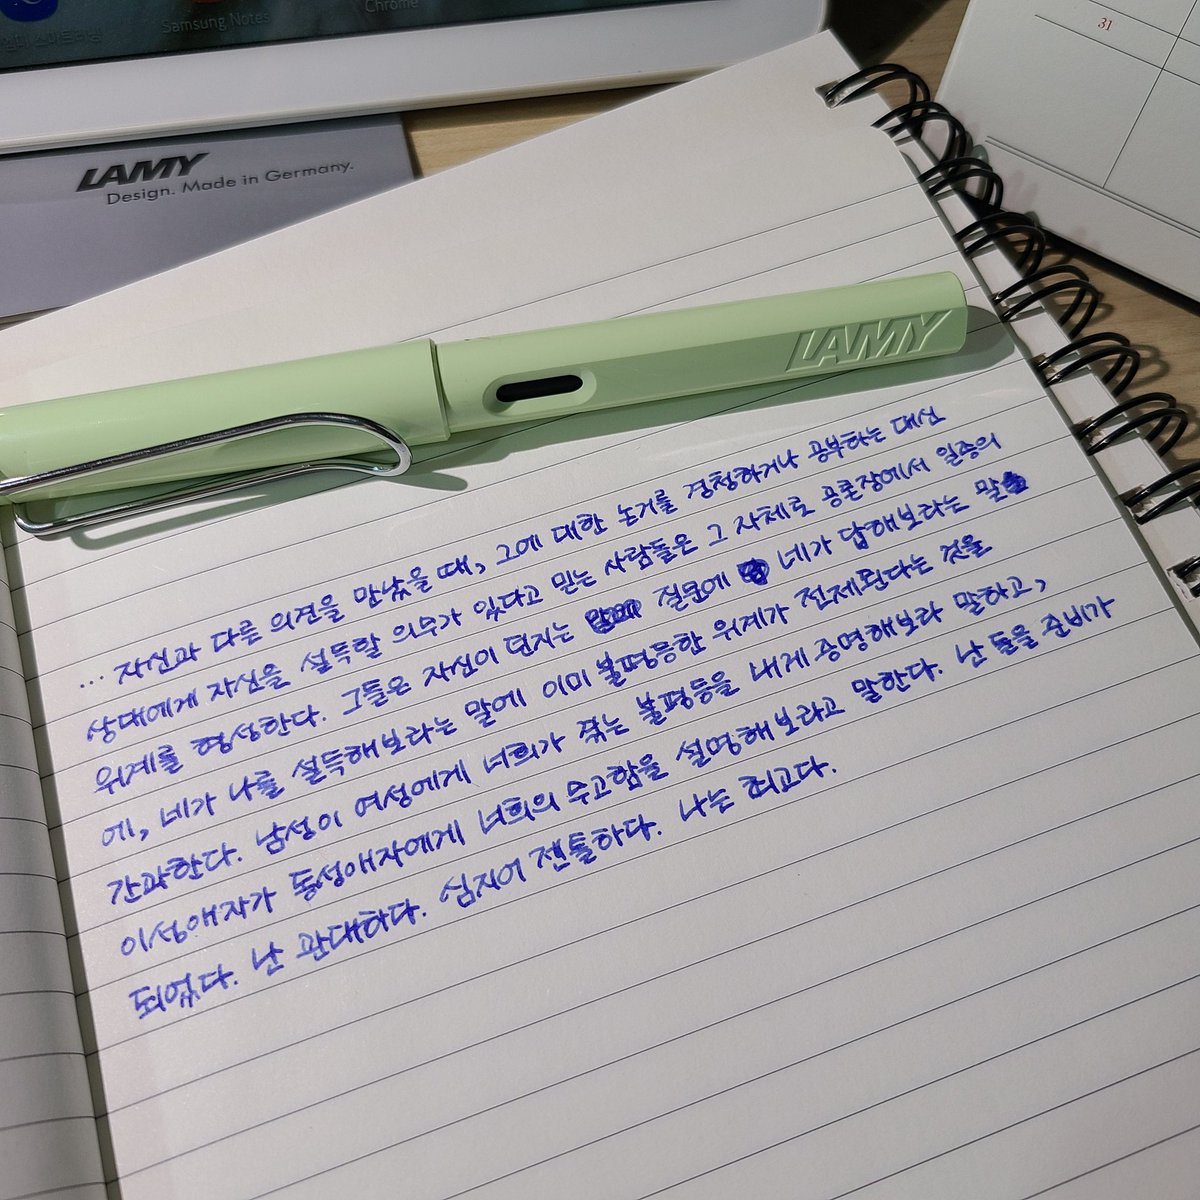 Samsung Notes
Chrome
31
LAMY
Design. Made in Germany.
LAMY
... 자신과 다른 의견을 만났을 때, 그에 대한 논거를 경청하거나 공부하는 대신
상대에게 자신을 설득할 의무가 있다고 믿는 사람들은 그 자체로 공론장에서 일종의
위계를 형성한다. 그들은 자신이 던지는 질문에 네가 답해보라는 말
에, 네가 나를 설득해보라는 말에 이미 불평등한 위계가 전제된다는 것을
간과한다. 남성이 여성에게 너희가 겪는 불평등을 내게 증명해보라 말하고,
이성애자가 동성애자에게 너희의 수고함을 설명해보라고 말한다. 난 들을 준비가
되었다. 난 관대하다. 심지어 젠틀하다. 나는 최고다.